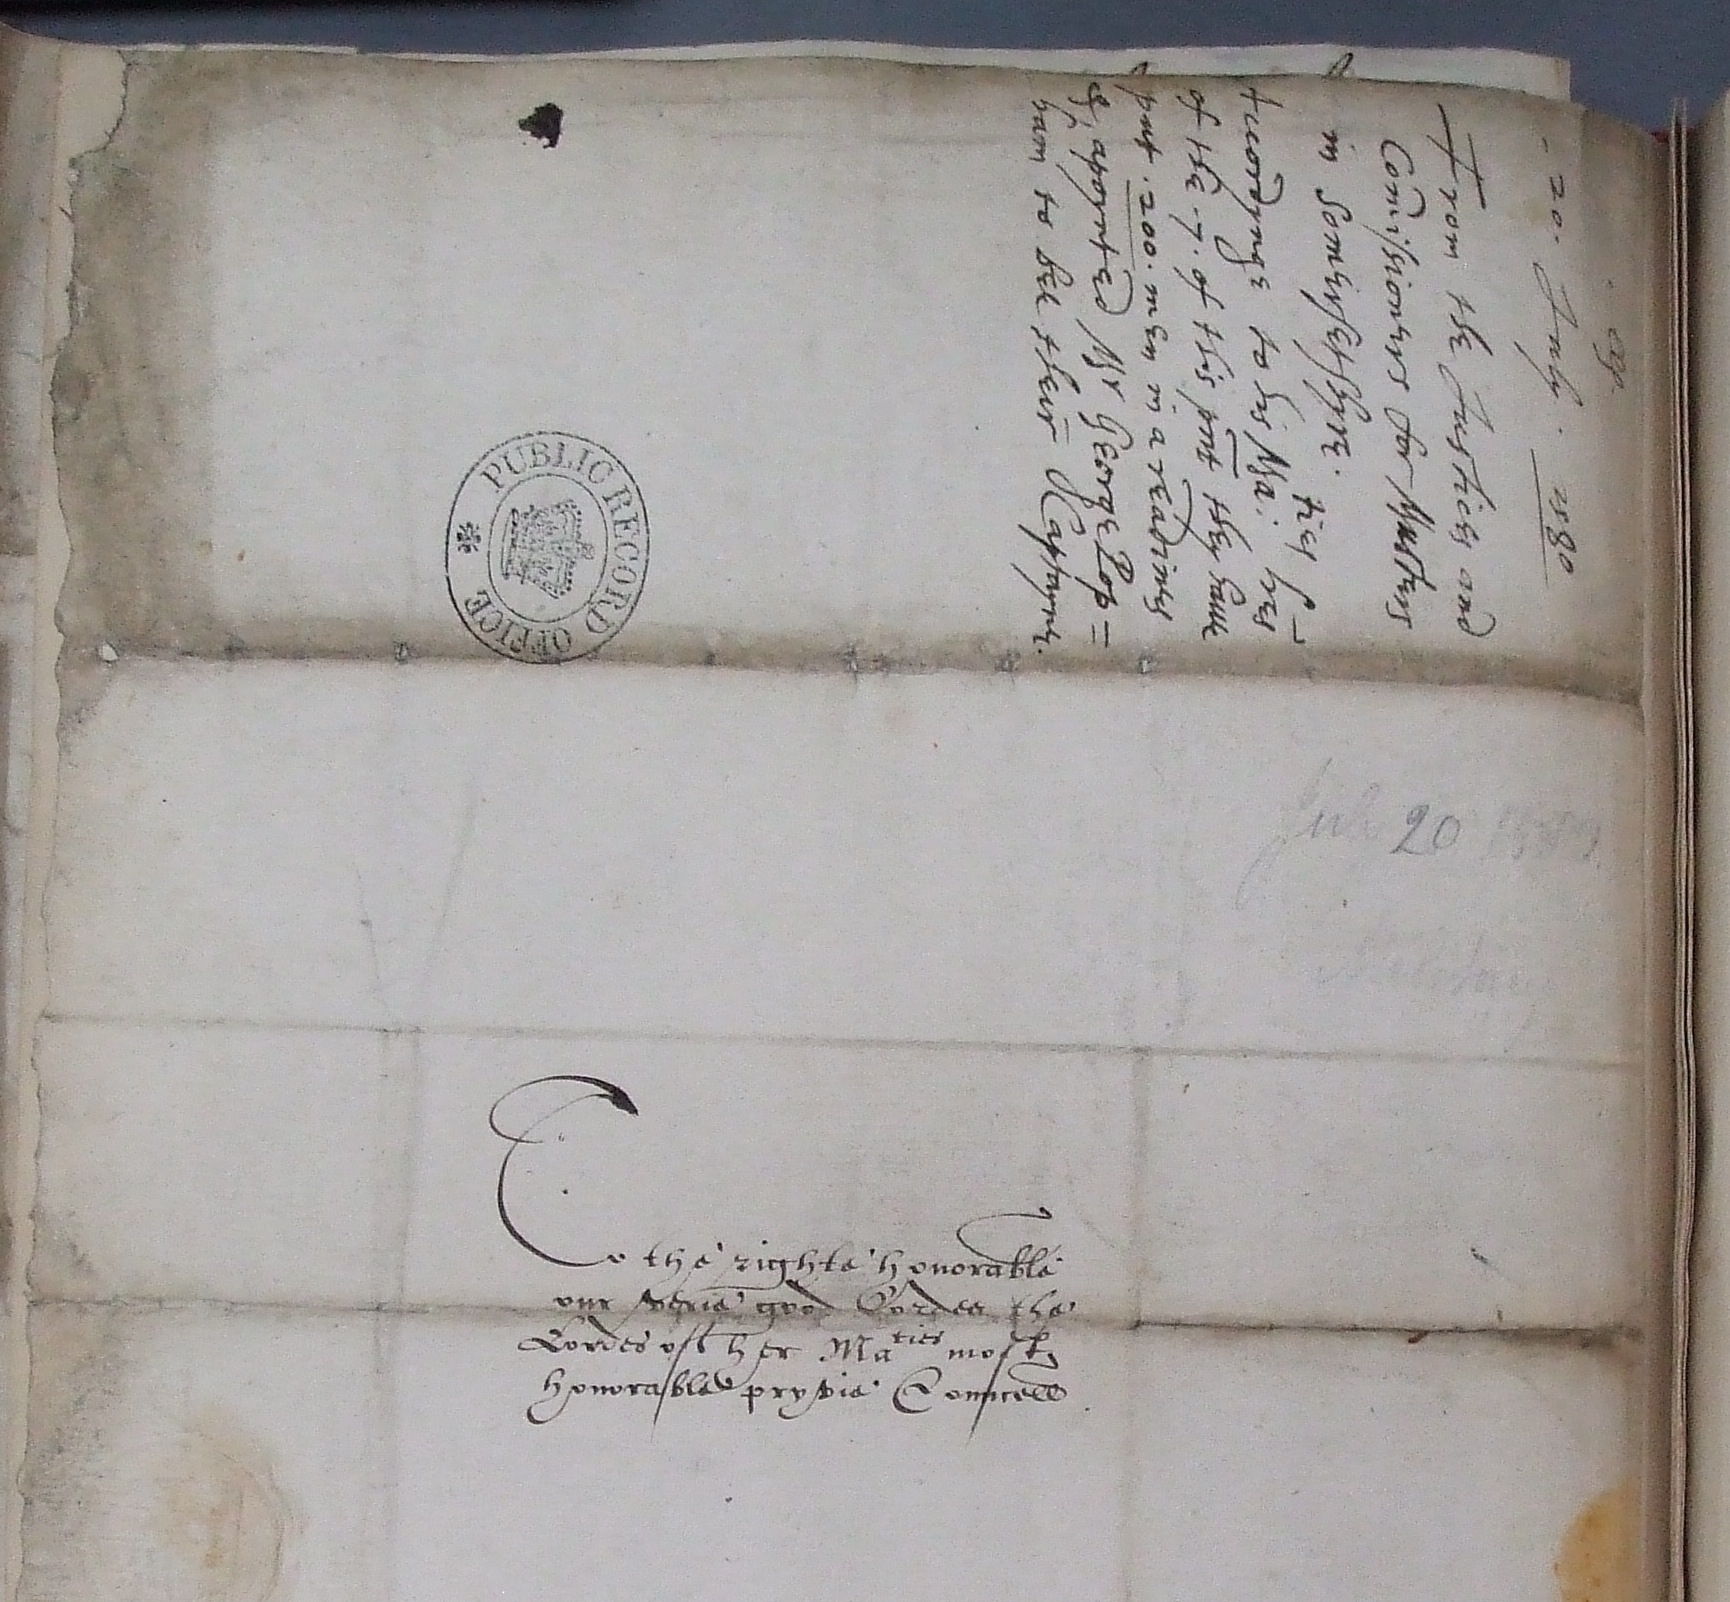 20. July. 1580
From the Justices and
Comissioners for Musters
in Somersetshyre.
Accordynge to her Ma.ties lres
of the .7. of this pnt they haue
put .200. men in a readines
& apoynted Mr George Pop=
ham to bee their Captayne.
PUBLIC RECORD OFFICE
July 20
To the righte honorable
our verie good Lordes the
Lordes off her Maties most
honorable pryvie Councell